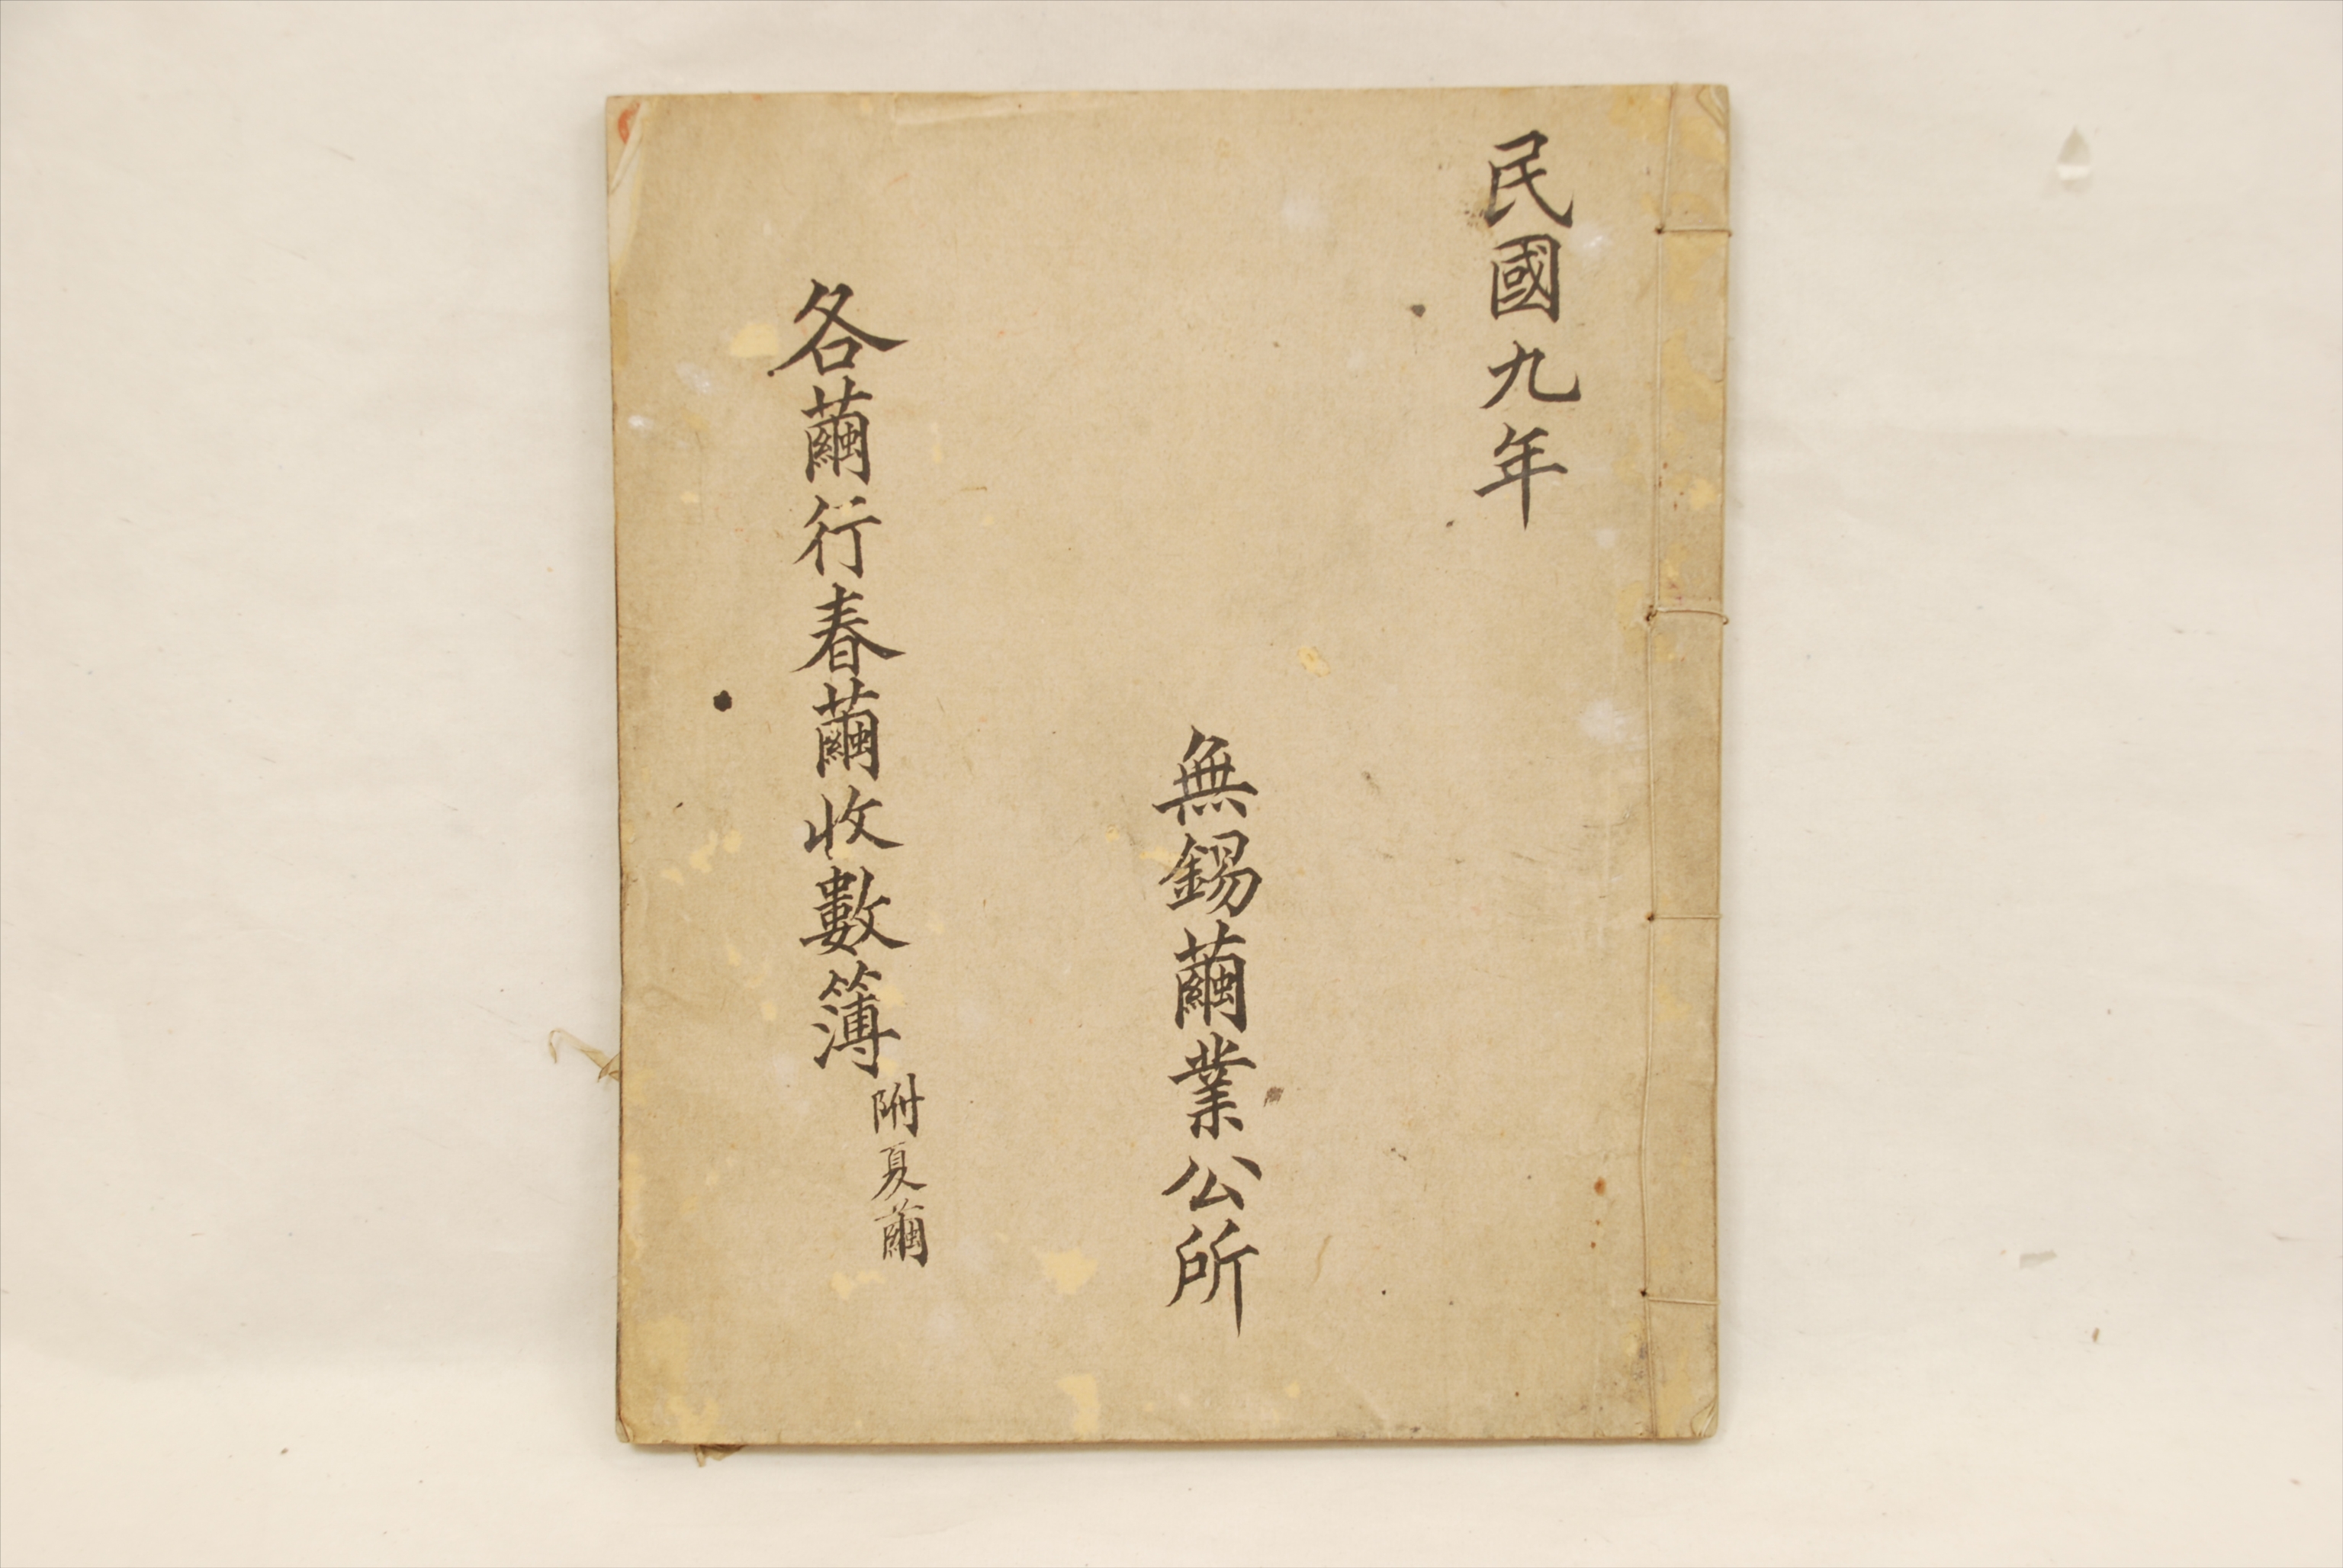 民國九年
無錫繭業公所
各繭行春繭收數簿
附夏繭